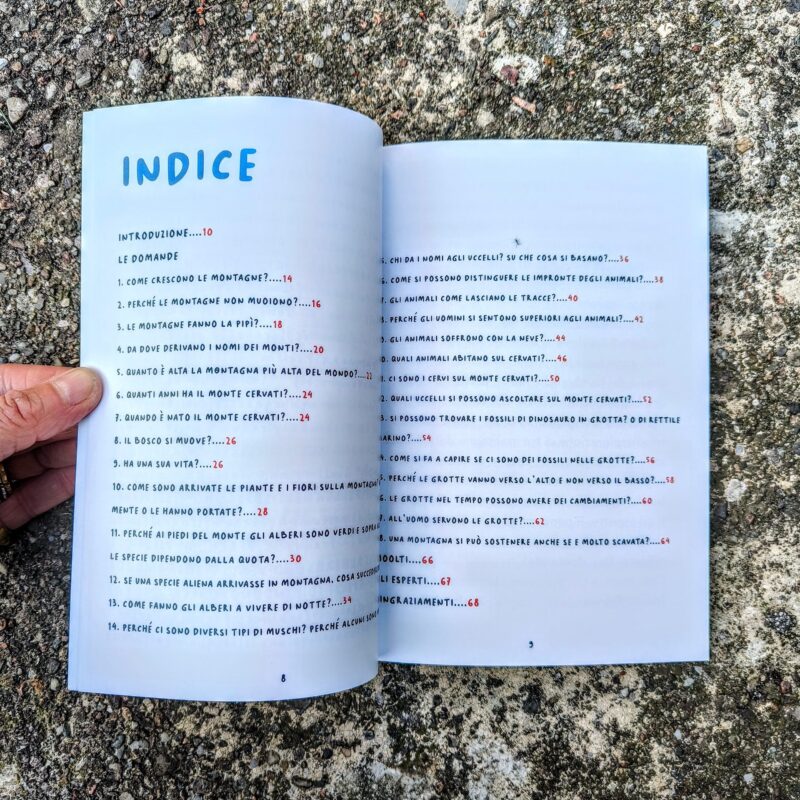 INDICE
INTRODUZIONE....10
LE DOMANDE
1. COME CRESCONO LE MONTAGNE?....14
2. PERCHÉ LE MONTAGNE NON MUOIONO?....16
3. LE MONTAGNE FANNO LA PIPÌ?....18
4. DA DOVE DERIVANO I NOMI DEI MONTI?....20
5. QUANTO È ALTA LA MONTAGNA PIÙ ALTA DEL MONDO?....22
6. QUANTI ANNI HA IL MONTE CERVATI?....24
7. QUANDO È NATO IL MONTE CERVATI?....24
8. IL BOSCO SI MUOVE?....26
9. HA UNA SUA VITA?....26
10. COME SONO ARRIVATE LE PIANTE E I FIORI SULLA MONTAGNA?
MENTE O LE HANNO PORTATE?....28
11. PERCHÉ AI PIEDI DEL MONTE GLI ALBERI SONO VERDI E
LE SPECIE DIPENDONO DALLA QUOTA?....30
12. SE UNA SPECIE ALIENA ARRIVASSE IN MONTAGNA, COSA
13. COME FANNO GLI ALBERI A VIVERE DI NOTTE?....34
14. PERCHÉ CI SONO DIVERSI TIPI DI MUSCHI? PERCHÉ ALCUNI SONO
8
5. CHI DA I NOMI AGLI UCCELLI? SU CHE COSA SI BASANO?....36
6. COME SI POSSONO DISTINGUERE LE IMPRONTE DEGLI ANIMALI?....38
7. GLI ANIMALI COME LASCIANO LE TRACCE?....40
8. PERCHÉ GLI UOMINI SI SENTONO SUPERIORI AGLI ANIMALI?....42
9. GLI ANIMALI SOFFRONO CON LA NEVE?....44
0. QUALI ANIMALI ABITANO SUL CERVATI?....46
1. CI SONO I CERVI SUL MONTE CERVATI?....50
2. QUALI UCCELLI SI POSSONO ASCOLTARE SUL MONTE CERVATI?....52
3. SI POSSONO TROVARE I FOSSILI DI DINOSAURO IN GROTTA? O DI RETTILE
MARINO?....54
4. COME SI FA A CAPIRE SE CI SONO DEI FOSSILI NELLE GROTTE?....56
5. PERCHÉ LE GROTTE VANNO VERSO L'ALTO E NON VERSO IL BASSO?....58
6. LE GROTTE NEL TEMPO POSSONO AVERE DEI CAMBIAMENTI?....60
7. ALL'UOMO SERVONO LE GROTTE?....62
8. UNA MONTAGNA SI PUÒ SOSTENERE ANCHE SE È MOLTO SCAVATA?....64
OOLTI....66
LI ESPERTI....67
INGRAZIAMENTI....68
9